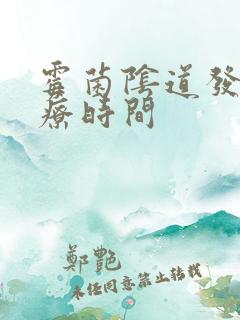 霉菌陰道發
療時間
鄭艷
未经同意禁止转载